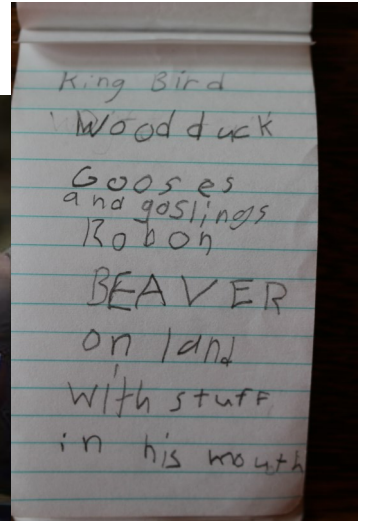 King Bird
Wood duck
Gooses
and goslings
Robon
BEAVER
on land
with stuff
in his mouth